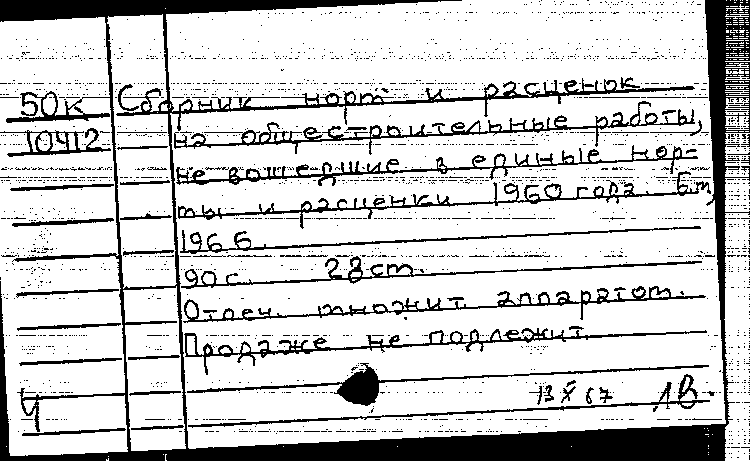 50к Сборник норм и расценок
10412 на общестроительные работы,
не вошедшие в единые нор-
мы и расценки 1960 года. Б.м,
1966.
90 с. 28 см.
Отпеч. множит. аппаратом.
Продаже не подлежит.
Ч 13 X 67 ЛВ.